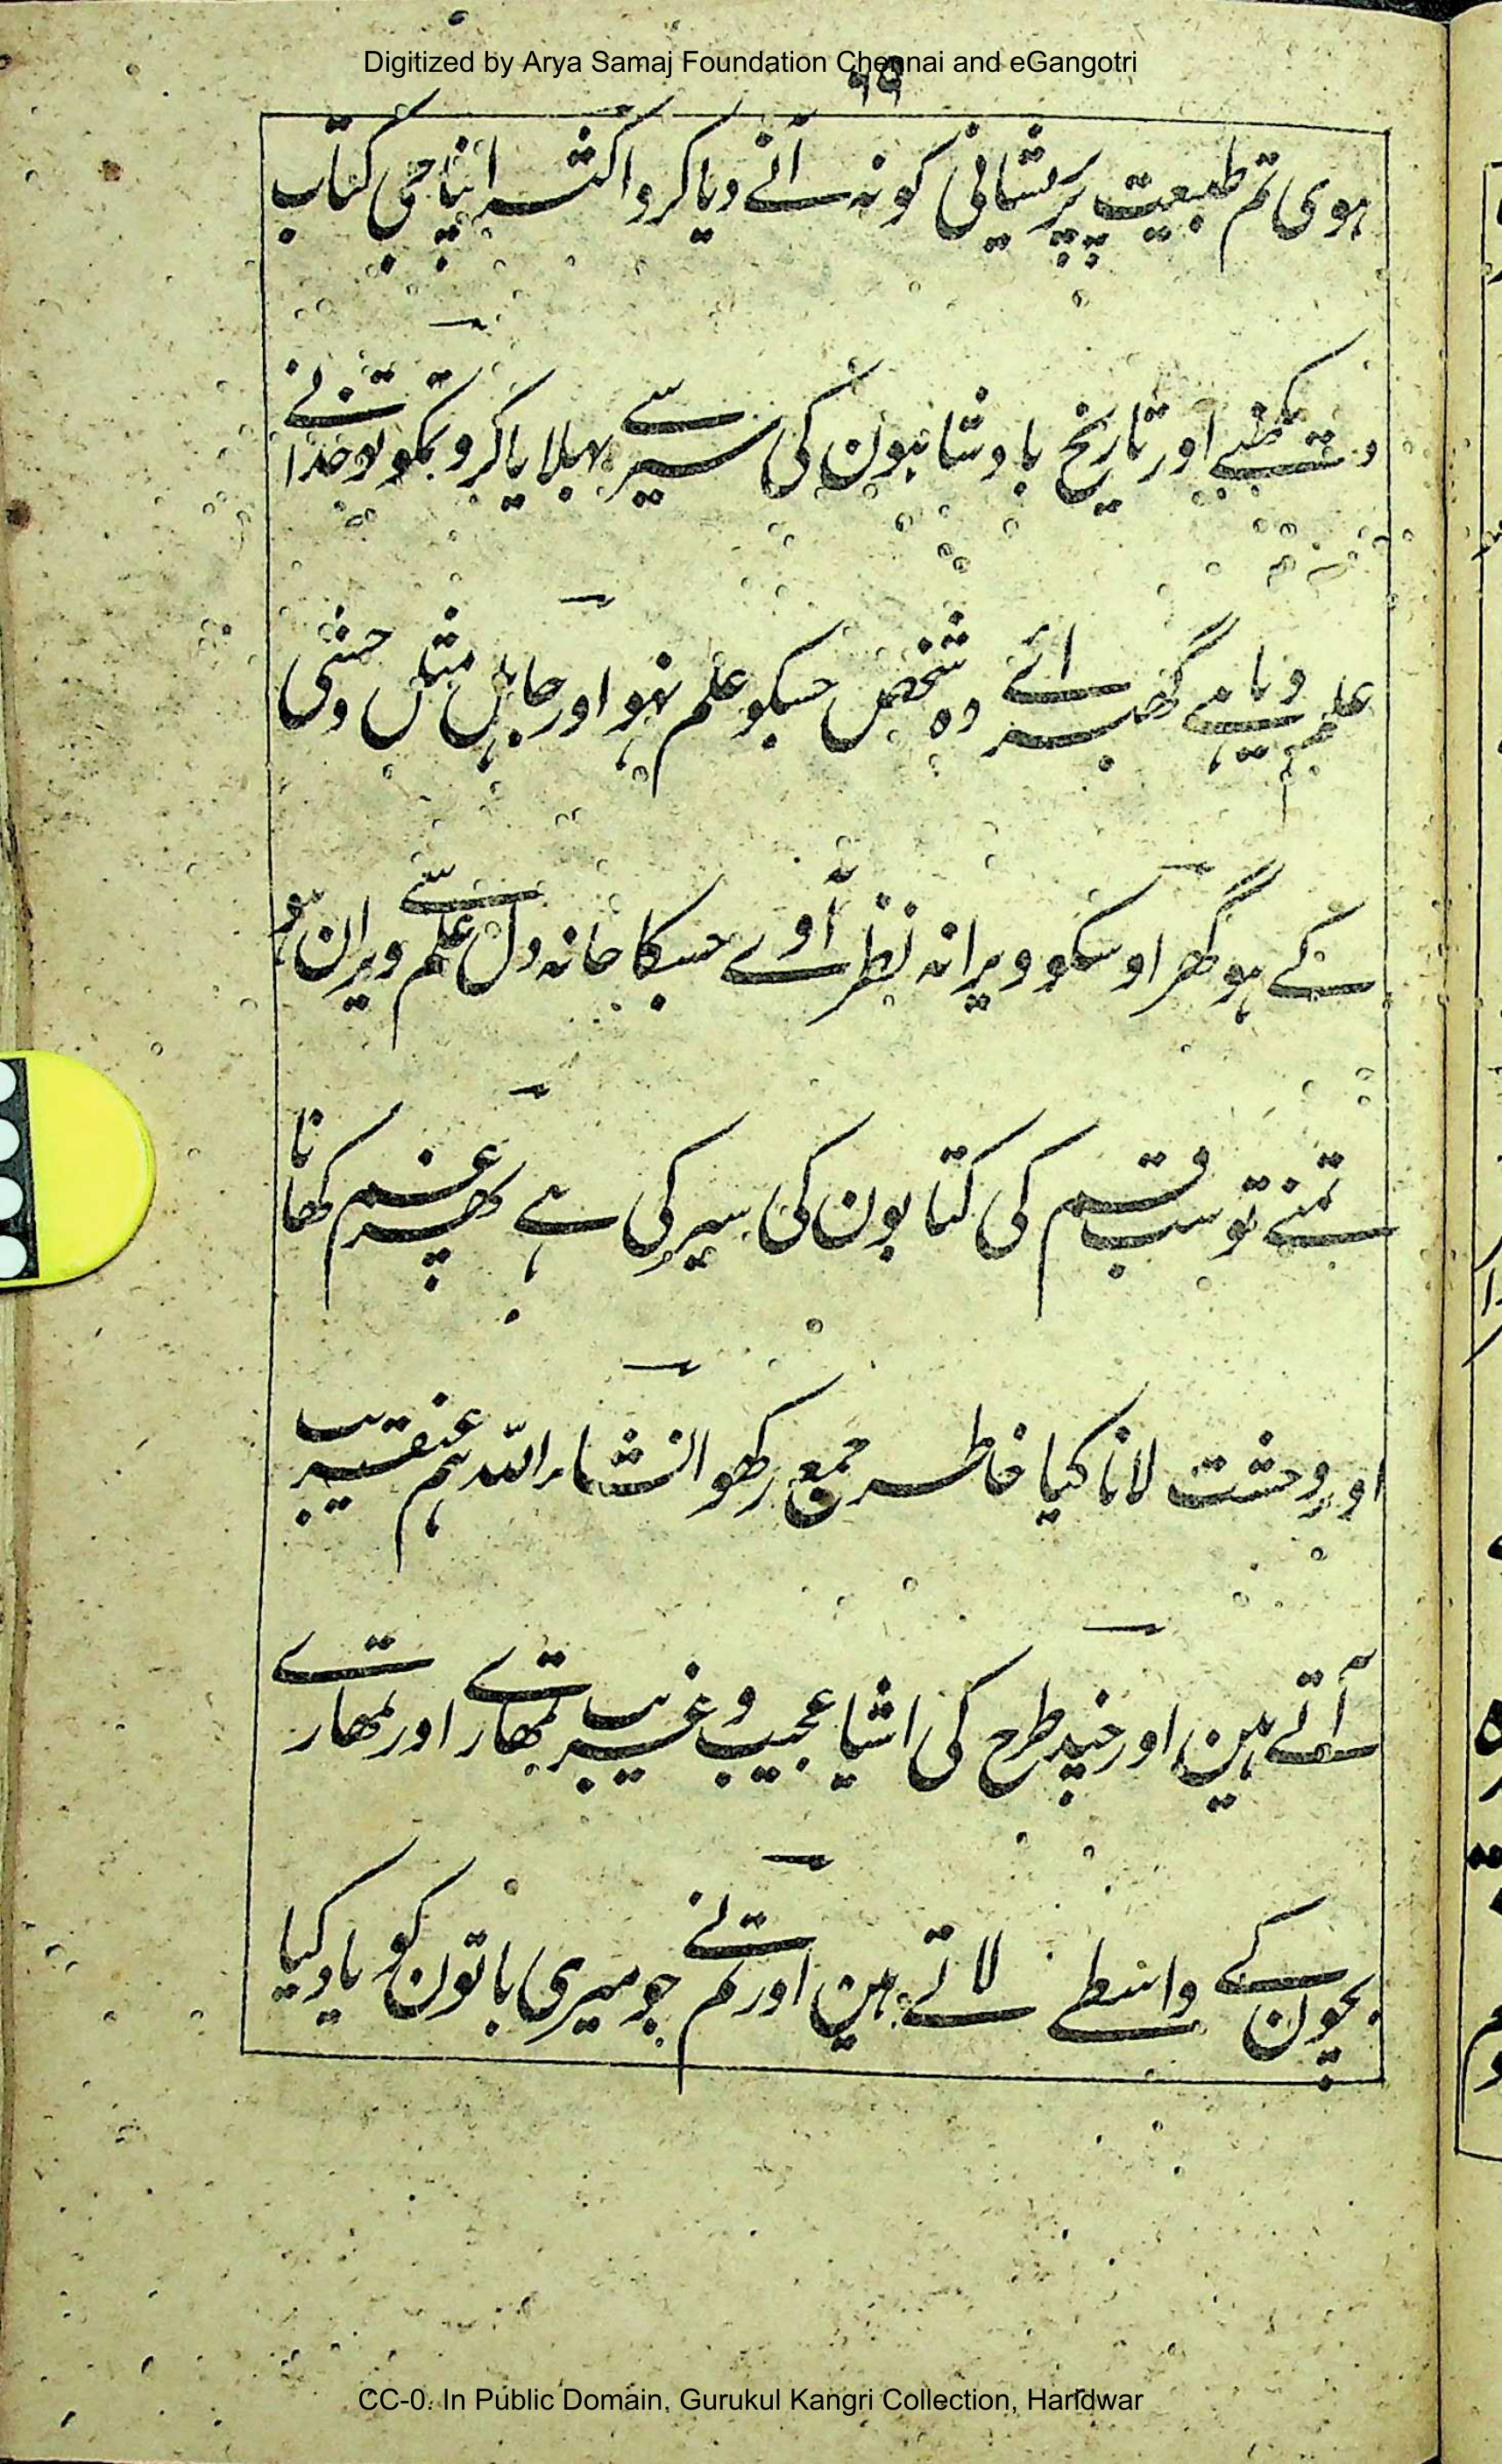 Digitized by Arya Samaj Foundation Chennai and eGangotri
ہوی تم طبیعت پر پریشانی کو نہ آنے دیا کرو اکثر اپنا جی کتاب
دیکھنے اور تاریخ بادشاہون کی سیر سے بہلایا کرو تمکو تو خدا نے
علم دیا ہے گھبرائے وہ شخص جسکو علم نہو اور جاہل مثل وحشی
کے ہو گھر اوسکو ویرانہ نظر آوے جسکا خانہ دل علم سے ویران ہو
تمنے تو سب قسم کی کتابون کی سیر کی ہے پھر غم کھانا
اور وحشت لانا کیا خاطر جمع رکھو انشاء اللہ ہم عنقریب
آتے ہین اور چند طرح کی اشیا عجیب و غریب تمھارے اور تمھارے
بچون کے واسطے لاتے ہین اور تم نے جو میری باتون کو یاد کیا
CC-0. In Public Domain. Gurukul Kangri Collection, Haridwar